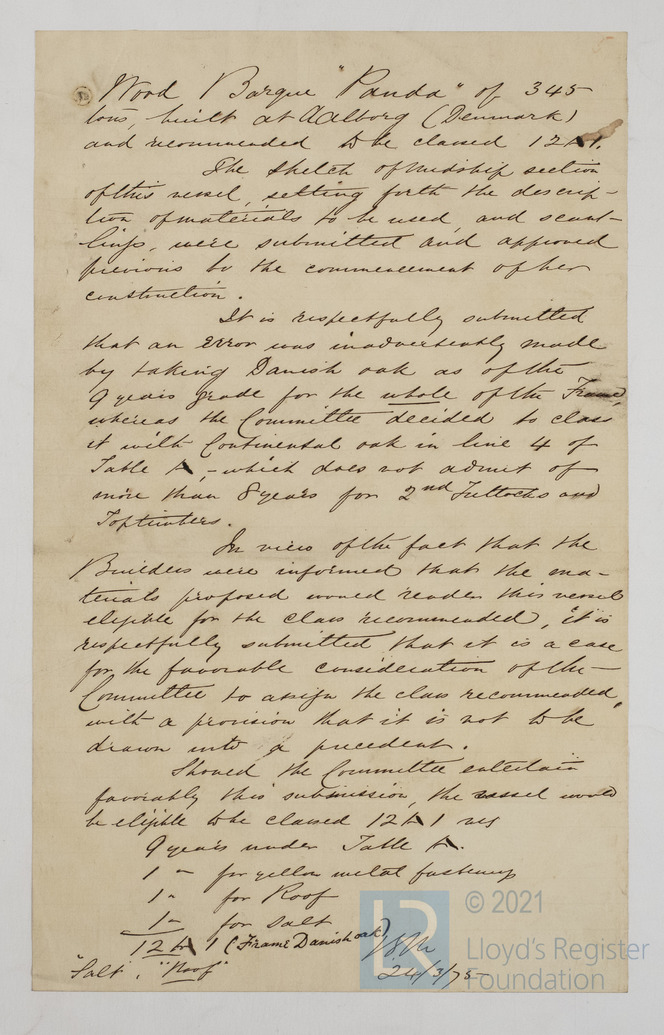 Wood Barque "Panda" of 345
tons, built at Aalborg (Denmark)
and recommended to be classed 12 A 1.
The sketch of midship section
of this vessel, setting forth the descrip-
tion of materials to be used, and scant-
lings, were submitted and approved
previous to the commencement of her
construction.
It is respectfully submitted
that an error was inadvertently made
by taking Danish oak as of the
9 years grade for the whole of the Frame,
whereas the Committee decided to class
it with Continental oak in line 4 of
Table A, - which does not admit of
more than 8 years for 2nd Futtocks and
Toptimbers.
In view of the fact that the
Builders were informed that the ma-
terials proposed would render this vessel
eligible for the class recommended, it is
respectfully submitted that it is a case
for the favorable consideration of the
Committee to assign the class recommended,
with a provision that it is not to be
drawn into a precedent.
Should the Committee entertain
favorably this submission, the vessel would
be eligible to be classed 12 A 1 viz
9 years under Table A.
1 " for yellow metal fastenings
1 " for Roof
1 " for Salt
12 A 1 (Frame Danish oak)
"Salt", "Roof"
24/3/75
© 2021
LR
Lloyd's Register
Foundation